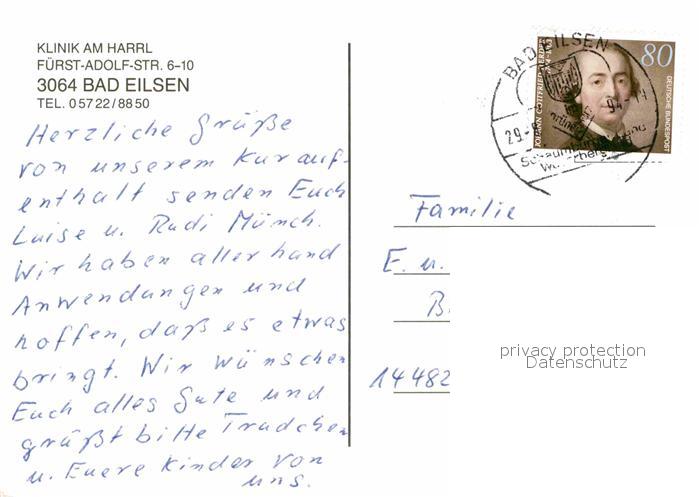 KLINIK AM HARRL
FÜRST-ADOLF-STR. 6–10
3064 BAD EILSEN
TEL. 0 57 22 / 88 50
Herzliche Grüße
von unserem Kurauf-
enthalt senden Euch
Luise u. Rudi Münch.
Wir haben aller hand
Anwendungen und
hoffen, daß es etwas
bringt. Wir wünschen
Euch alles Gute und
grüßt bitte Trudchen
u. Euere Kinder von
uns.
80
DEUTSCHE BUNDESPOST
JOHANN GOTTFRIED HERDER
BAD EILSEN
29
Familie
E. u.
B
14482
privacy protection
Datenschutz